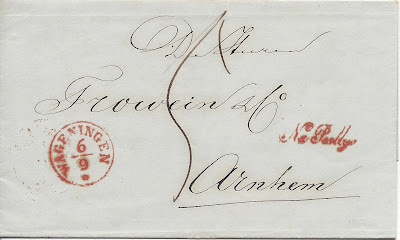 De Heeren
Frowein & Co
5
WAGENINGEN
6/9
Na Posttyd
Arnhem